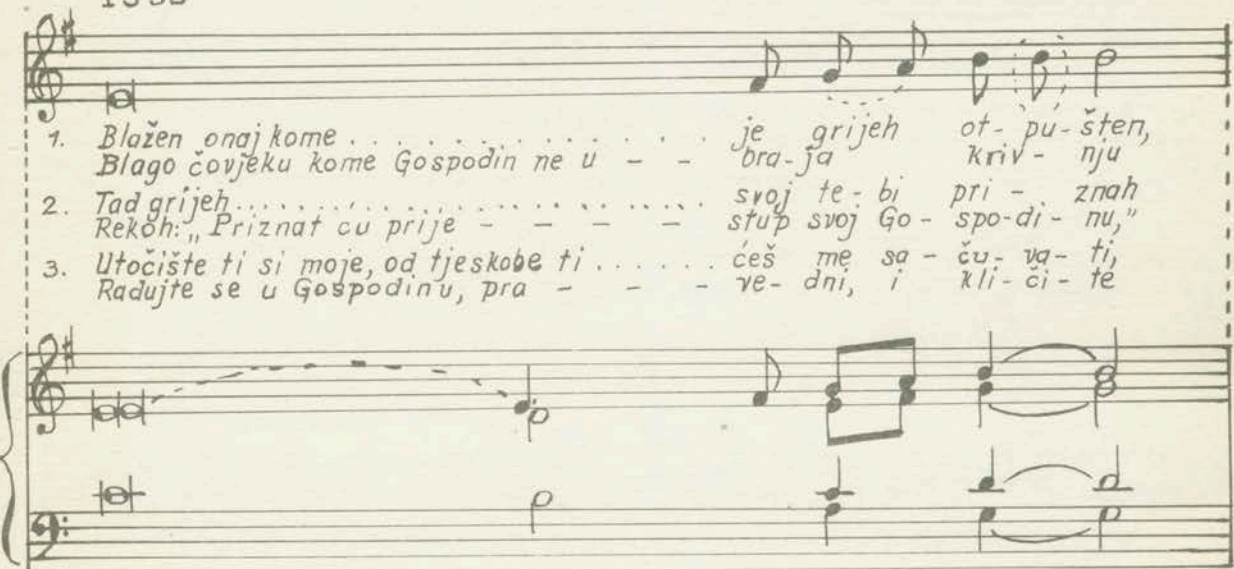 1. Blažen onaj kome . . . . . . . . . . . . . . . je grijeh ot- pu- šten,
Blago čovjeku kome Gospodin ne u - - bra-ja kriv - nju
2. Tad grijeh . . . . . . . . . . . . . . . . . . . . svoj te- bi pri - znah
Rekoh: „Priznat cu prije - - - - stup svoj Go- spo-di- nu,”
3. Utočište ti si moje, od tjeskobe ti . . . . . . ćeš me sa- ču- va- ti,
Radujte se u Gospodinu, pra - - - ve- dni, i kli- či- te